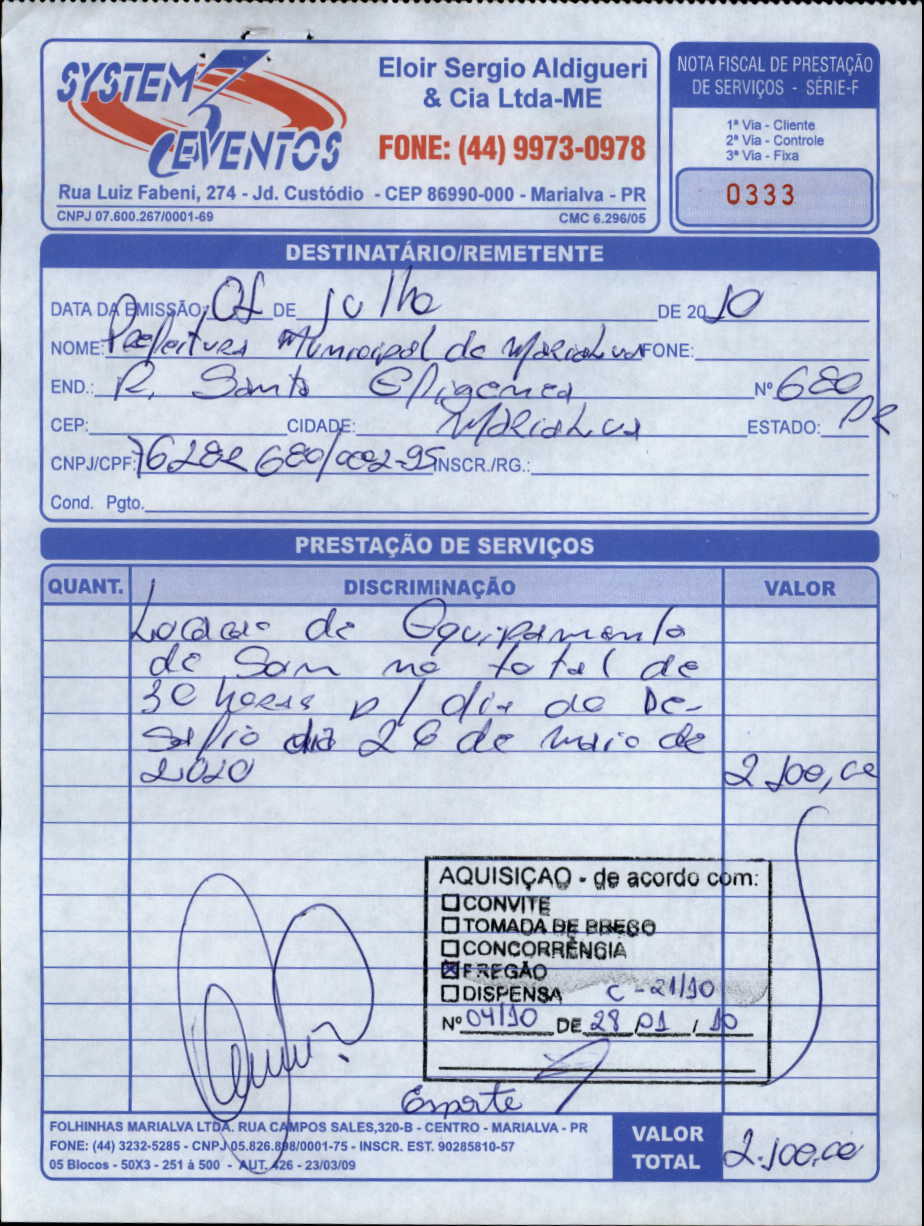 SYSTEM 3 EVENTOS
Eloir Sergio Aldigueri
& Cia Ltda-ME
FONE: (44) 9973-0978
Rua Luiz Fabeni, 274 - Jd. Custódio - CEP 86990-000 - Marialva - PR
CNPJ 07.600.267/0001-69 CMC 6.296/05
NOTA FISCAL DE PRESTAÇÃO
DE SERVIÇOS - SÉRIE-F
1ª Via - Cliente
2ª Via - Controle
3ª Via - Fixa
0333
DESTINATÁRIO/REMETENTE
DATA DA EMISSÃO: 01 DE julho DE 2010
NOME: Prefeitura Municipal de Marialva FONE:
END.: R. Santa Efigenea Nº 680
CEP: CIDADE: Marialva ESTADO: PR
CNPJ/CPF: 76282680/002-95 INSCR./RG.:
Cond. Pgto.
PRESTAÇÃO DE SERVIÇOS
QUANT. DISCRIMINAÇÃO VALOR
Locacao de Equipamento
de Som no total de
30 horas p/ dia do De-
safio dia 26 de maio de
2010 2.100,00
AQUISIÇAO - de acordo com:
CONVITE
TOMADA DE PREÇO
CONCORRÊNCIA
PREGÃO
DISPENSA C - 21/10
Nº 04/10 DE 28 / 01 / 10
Esporte
FOLHINHAS MARIALVA LTDA. RUA CAMPOS SALES,320-B - CENTRO - MARIALVA - PR
FONE: (44) 3232-5285 - CNPJ 05.826.898/0001-75 - INSCR. EST. 90285810-57
05 Blocos - 50X3 - 251 à 500 - AUT. 426 - 23/03/09
VALOR
TOTAL 2.100,00